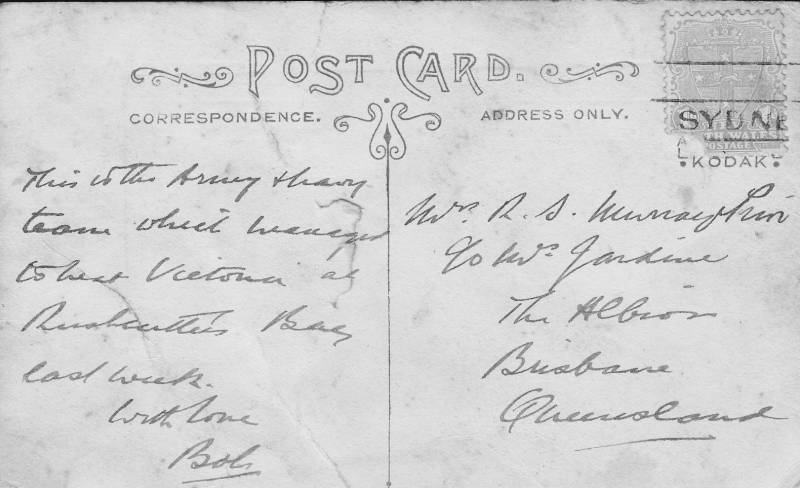 POST CARD.
CORRESPONDENCE.
ADDRESS ONLY.
SYDNE
TH WALES
POSTAGE
KODAK
This is the Army & Navy
team which managed
to beat Victoria at
Rushcutter's Bay
last week.
With love
Bob
Mrs R. S. Murray Prior
c/o Mrs Jardine
The Albion
Brisbane
Queensland